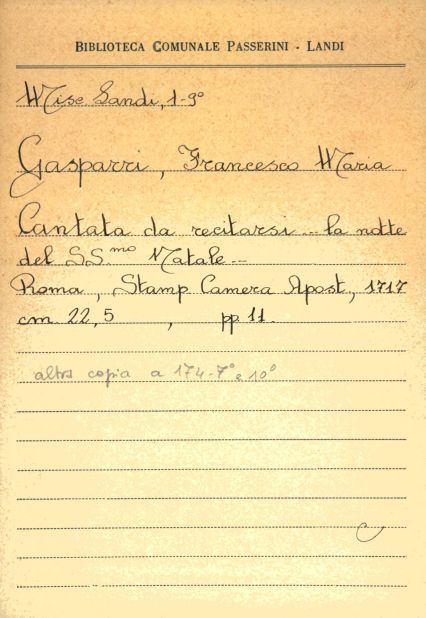 BIBLIOTECA COMUNALE PASSERINI - LANDI
Misc Landi, 1-9°
Gasparri, Francesco Maria
Cantata da recitarsi ... la notte
del SS.mo Natale ...
Roma, Stamp Camera Apost, 1717
cm 22,5 , pp 11.
altra copia a 174-7° e 10°
C